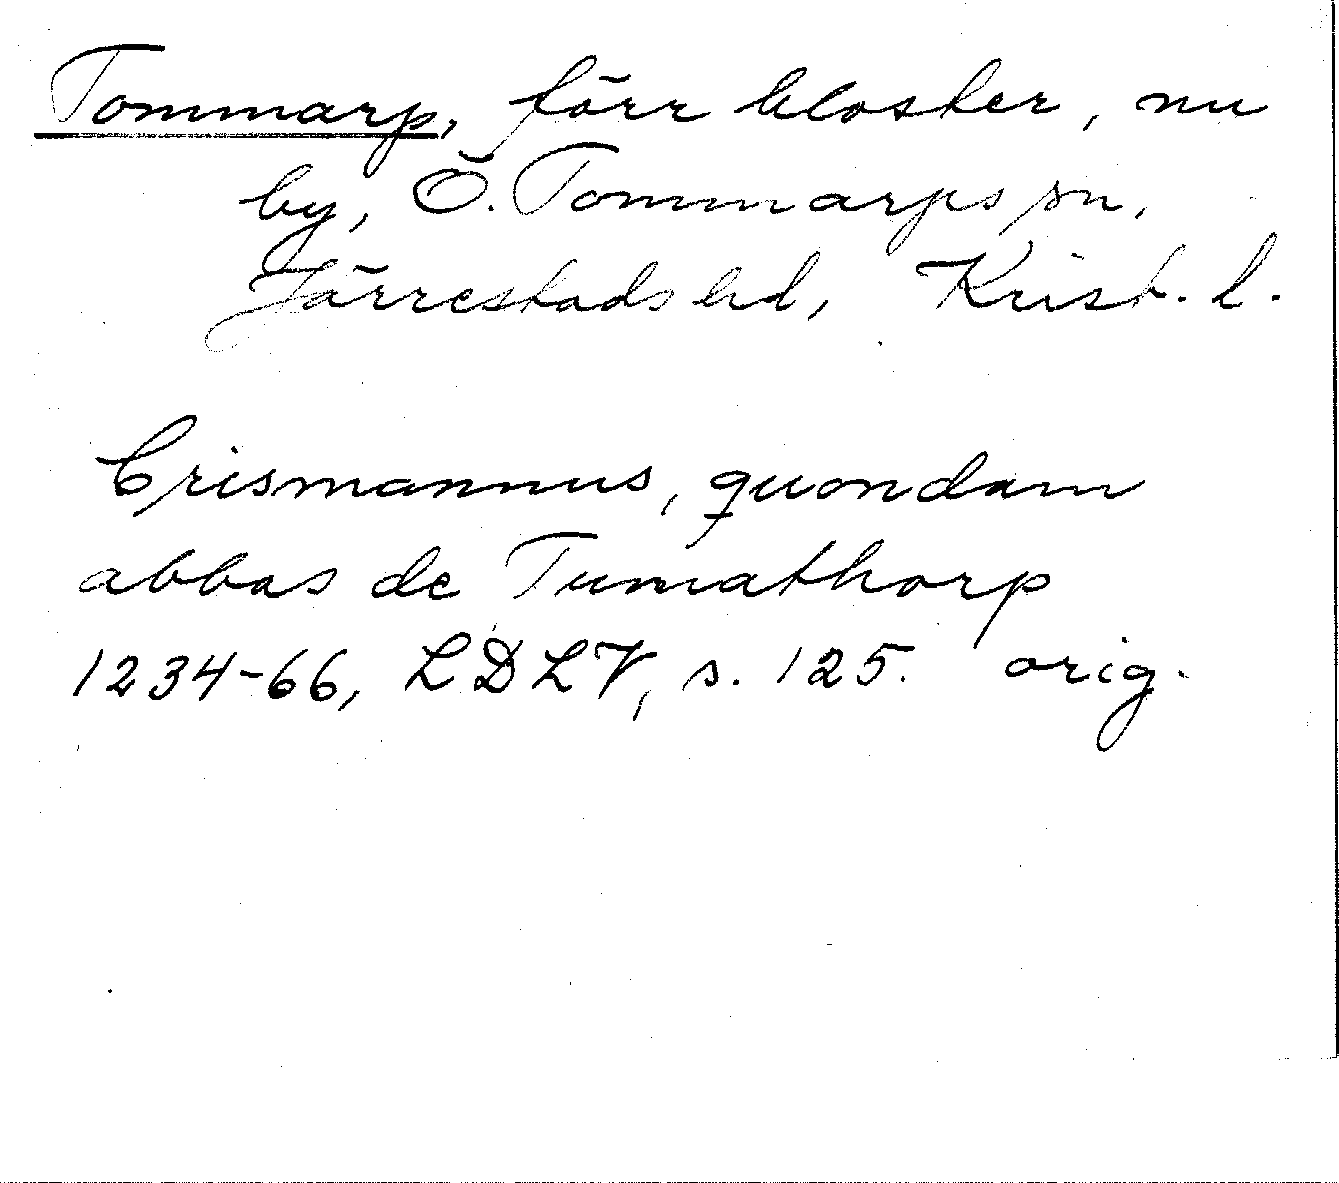 Tommarp, förr kloster, nu
by, Ö. Tommarps sn,
Järrestads hd, Krist. l.
Crismannus, quondam
abbas de Tumathorp
1234-66, LDLV, s. 125. orig.